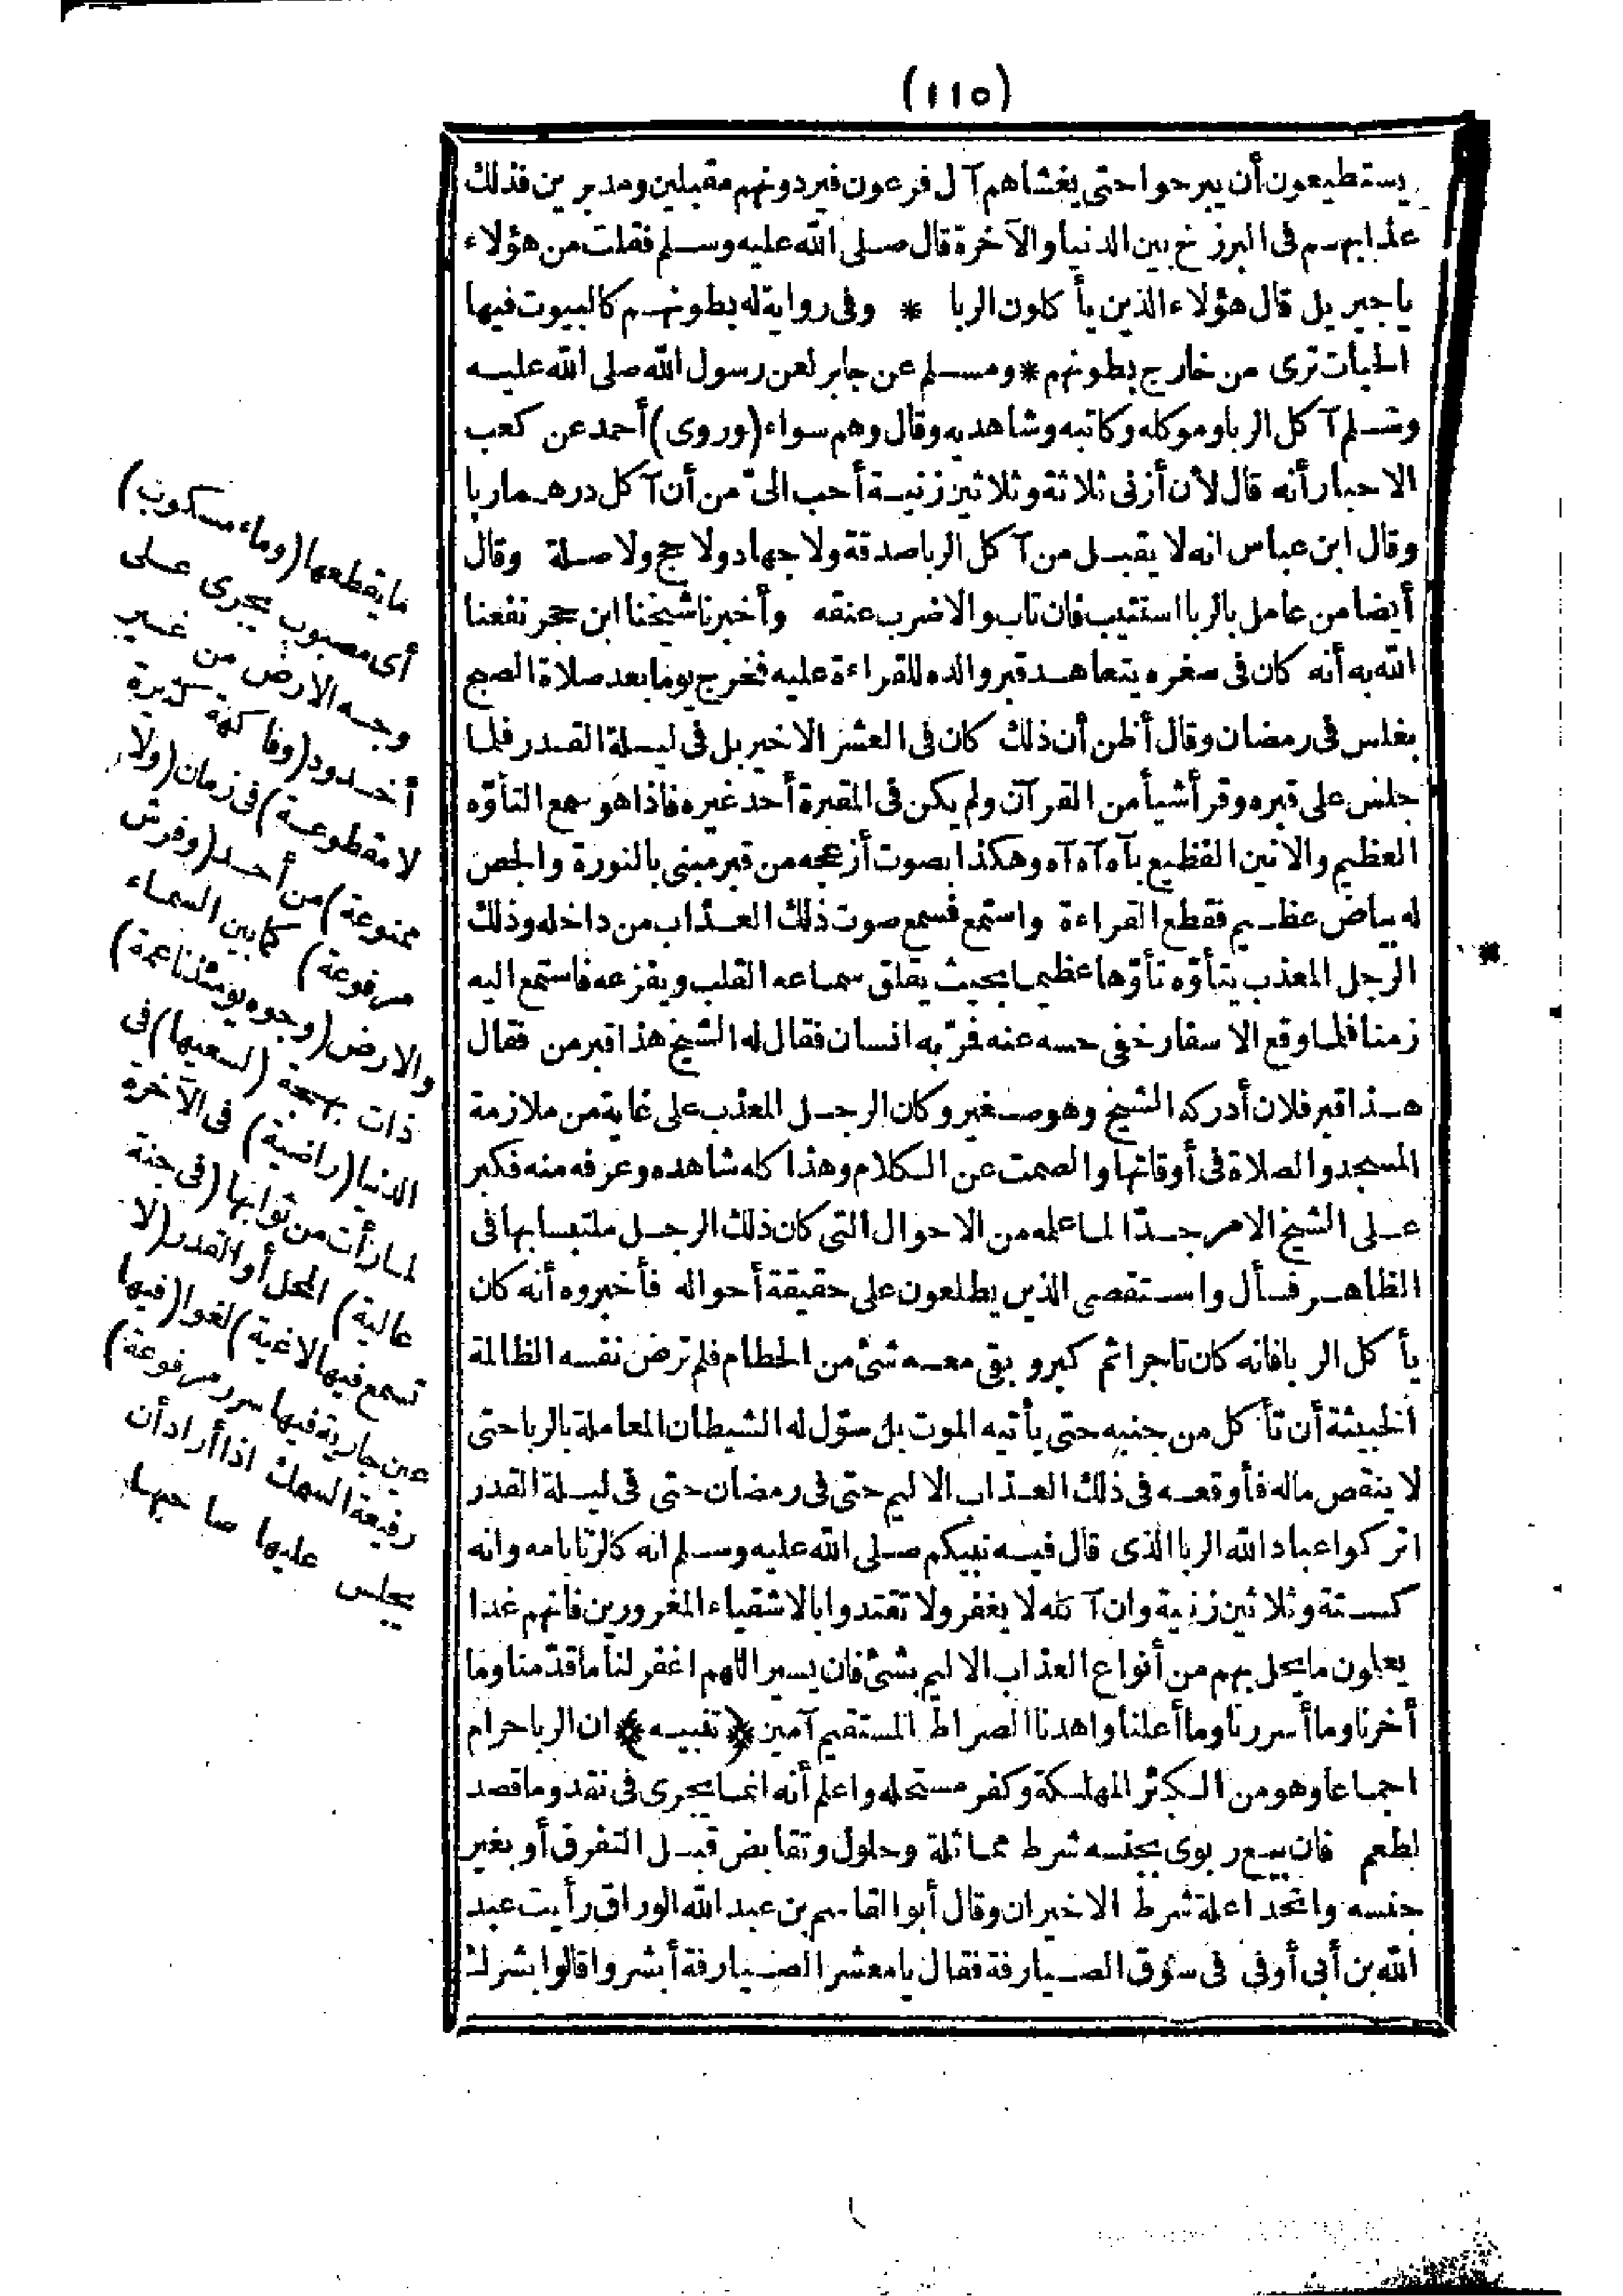 (١١٥)
يستطيعون أن يبرحوا حتى يغشاهم آل فرعون فيردونهم مقبلين ومدبرين فذلك
عذابهم في البرزخ بين الدنيا والآخرة قال صلى الله عليه وسلم فقلت من هؤلاء
يا جبريل قال هؤلاء الذين يأكلون الربا * وفى رواية له بطونهم كالبيوت فيها
الحيات ترى من خارج بطونهم * ومسلم عن جابر لعن رسول الله صلى الله عليه
وسلم آكل الربا وموكله وكاتبه وشاهديه وقال وهم سواء (وروى) أحمد عن كعب
الاحبار أنه قال لأن أزنى ثلاثة وثلاثين زنية أحب الىّ من أن آكل درهما ربا
وقال ابن عباس انه لا يقبل من آكل الربا صدقة ولا جهاد ولا حج ولا صلة وقال
أيضا من عامل بالربا استتيب فان تاب والا ضرب عنقه وأخبرنا شيخنا ابن حجر نفعنا
الله به أنه كان فى صغره يتعاهد قبر والده للقراءة عليه فخرج يوما بعد صلاة الصبح
بغلس فى رمضان وقال أظن أن ذلك كان فى العشر الاخير بل فى ليلة القدر فلما
جلس على قبره وقرأ شيأ من القرآن ولم يكن فى المقبرة أحد غيره فاذا هو سمع التأوّه
العظيم والانين الفظيع بآه آه آه وهكذا بصوت أزعجه من قبر مبنى بالنورة والجص
له بياض عظيم فقطع القراءة واستمع فسمع صوت ذلك العذاب من داخله وذلك
الرجل المعذب يتأوّه تأوّها عظيما بحيث يقلق سماعه القلب ويفزعه فاستمع اليه
زمنا فلما وقع الاسفار خفى حسه عنه فمرّ به انسان فقال له الشيخ هذا قبر من فقال
هذا قبر فلان أدركه الشيخ وهو صغير وكان الرجل المعذب على غاية من ملازمة
المسجد والصلاة فى أوقاتها والصمت عن الكلام وهذا كله شاهده وعرفه منه فكبر
على الشيخ الامر جدّا لما علمه من الاحوال التى كان ذلك الرجل ملتبسا بها فى
الظاهر فسأل واستقصى الذين يطلعون على حقيقة أحواله فأخبروه أنه كان
يأكل الربا فانه كان تاجرا ثم كبر وبقى معه شئ من الحطام فلم ترض نفسه الظالمة
الخبيثة أن تأكل من جنبه حتى يأتيه الموت بل سوّل له الشيطان المعاملة بالربا حتى
لا ينقص ماله فأوقعه فى ذلك العذاب الاليم حتى فى رمضان حتى فى ليلة القدر
اتركوا عباد الله الربا الذى قال فيه نبيكم صلى الله عليه وسلم انه كالزنا بامه وانه
كستة وثلاثين زنية وان آكله لا يغفر ولا تقتدوا بالاشقياء المغرورين فانهم غدا
يعلمون ما يحل بهم من أنواع العذاب الاليم بشئ فان يسير اللهم اغفر لنا ما قدّمنا وما
أخرنا وما أسررنا وما أعلنا واهدنا الصراط المستقيم آمين ﴿تنبيه﴾ ان الربا حرام
اجماعا وهو من الكبائر المهلكة وكفر مستحله واعلم أنه انما يجرى فى نقد وما قصد
لطعم فان بيع ربوى بجنسه شرط مماثلة وحلول وتقابض قبل التفرق أو بغير
جنسه واتحدا علة شرط الاخيران وقال أبو القاسم بن عبد الله الوراق رأيت عبد
الله بن أبى أوفى فى سوق الصيارفة فقال يا معشر الصيارفة أبشروا قالوا بشرك
ما يقطعها (وماء مسكوب)
أى مصبوب يجرى على
وجه الارض من غير
أخدود (وفاكهة كثيرة
لا مقطوعة) فى زمان (ولا
ممنوعة) من أحد (وفرش
مرفوعة) كما بين السماء
والارض (وجوه يومئذ ناعمة)
ذات بهجة (لسعيها) فى
الدنيا (راضية) فى الآخرة
لما رأت من ثوابها (فى جنة
عالية) المحل أو القدر (لا
تسمع فيها لاغية) لغوا (فيها
عين جارية فيها سرر مرفوعة)
رفيعة السمك اذا أراد أن
يجلس عليها صاحبها